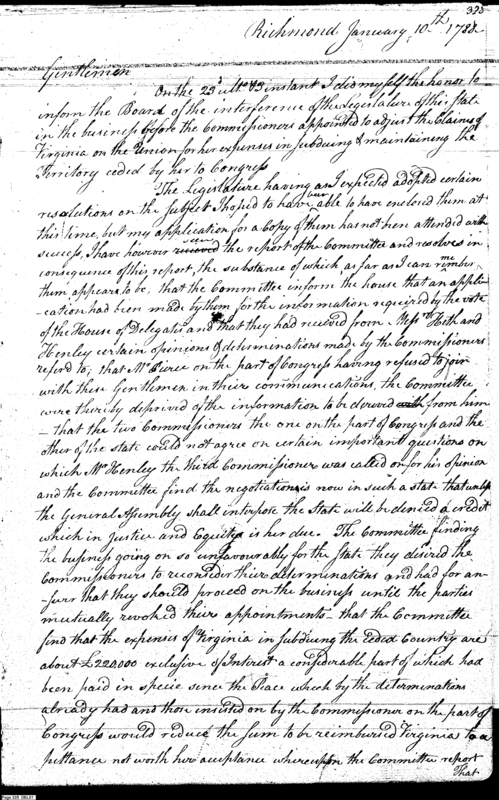 393
Richmond January 10th 1788.
Gentlemen
On the 23d ulto & 3 instant I did myself the honor to
inform the Board of the interference of the Legislature of this State
in the business before the Commissioners appointed to adjust the Claims of
Virginia on the Union for her expenses in subduing & maintaining the
Territory ceded by her to Congress
The Legislature having as I expected adopted certain
resolutions on the subject I hoped to have been able to have enclosed them at
this time, but my application for a Copy of them has not been attended with
success, I have however seen the report of the Committee and resolves in
consequence of this report, the substance of which as far as I can remember
them appears to be, that the Committee inform the house that an appli-
-cation had been made by them for the information required by the vote
of the House of Delegates and that they had received from Messrs Heth and
Henley certain opinions & determinations made by the Commissioners
referd to; that Mr Pierce on the part of Congress having refused to join
with these Gentlemen in their communications, the Committee
were thereby deprived of the information to be derived from him
- that the two Commissioners the one on the part of Congress and the
other of the state could not agree on certain important questions on
which Mr Henley the third Commissioner was called on for his opinion
and the Committee find the negotiation is now in such a state that unless
the General Assembly shall interpose the State will be denied a credit
which in Justice and Equity is her due. The Committee finding
the business going on so unfavourably for the State they desired the
Commissioners to reconsider their determinations and had for an-
-swer that they should proceed on the business until the parties
mutually revoked their appointments - that the Committee
find that the expenses of Virginia in subduing the ceded Country are
about £220,000 exclusive of Interest a considerable part of which had
been paid in specie since the Peace which by the determinations
already had and those insisted on by the Commissioner on the part of
Congress would reduce the sum to be reimbursed Virginia to a
pittance not worth her acceptance whereupon the Committee report
That